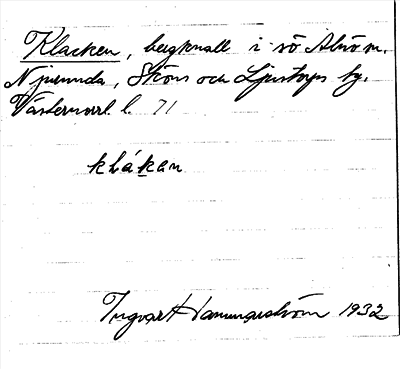 Klacken, bergknall i sö Alnö sn.
Njurunda, Sköns och Ljustorps tg.
Västernorrl. l. 71
klákan
Ingvar Hammarström 1932